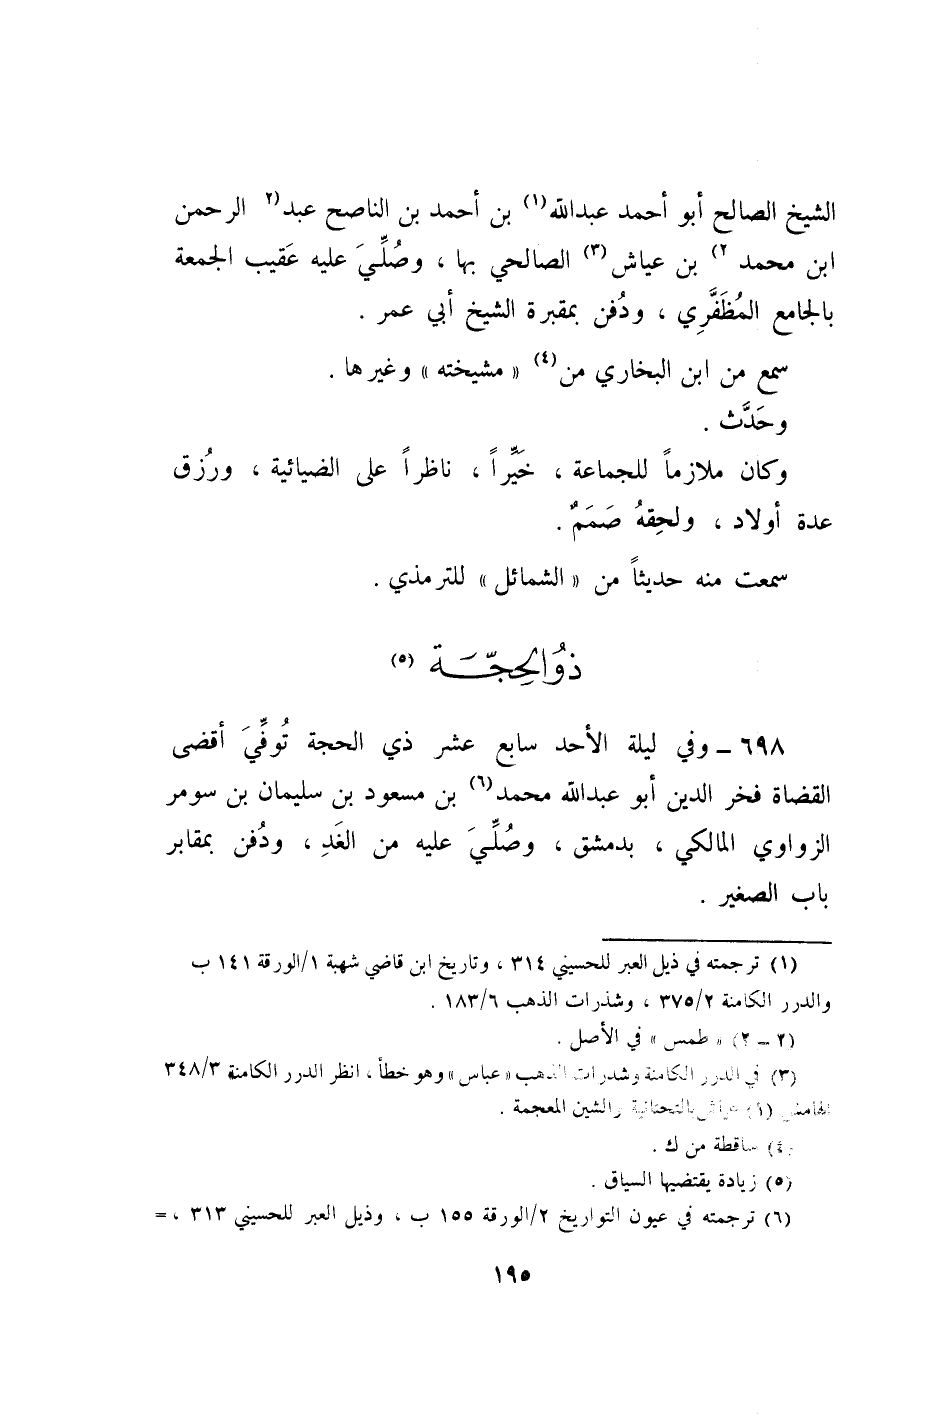 الشيخ الصالح أبو أحمد عبدالله(١) بن أحمد بن الناصح عبد(٢ الرحمن
ابن محمد ٢) بن عياش(٣) الصالحي بها ، وصُلِّيَ عليه عَقيب الجمعة
بالجامع المُظَفَّرِي ، ودُفن بمقبرة الشيخ أبي عمر .
سمع من ابن البخاري من(٤) « مشيخته » وغيرها .
وحَدَّث .
وكان ملازماً للجماعة ، خَيِّراً ، ناظراً على الضيائية ، ورُزق
عدة أولاد ، ولحِقهُ صَمَمٌ .
سمعت منه حديثاً من « الشمائل » للترمذي .
ذُو الحِجَّة (٥)
٦٩٨ ـ وفي ليلة الأحد سابع عشر ذي الحجة تُوفِّيَ أقضى
القضاة فخر الدين أبو عبدالله محمد(٦) بن مسعود بن سليمان بن سومر
الزواوي المالكي ، بدمشق ، وصُلِّيَ عليه من الغَدِ ، ودُفن بمقابر
باب الصغير .
(١) ترجمته في ذيل العبر للحسيني ٣١٤ ، وتاريخ ابن قاضي شهبة ١/الورقة ١٤١ ب
والدرر الكامنة ٣٧٥/٢ ، وشذرات الذهب ١٨٣/٦ .
(٢ ـ ٢) « طمس » في الأصل .
(٣) في الدرر الكامنة وشذرات الذهب « عباس » وهو خطأ ، انظر الدرر الكامنة ٣٤٨/٣
الهامش (١) عياش بالتحتانية والشين المعجمة .
(٤) ساقطة من ك .
(٥) زيادة يقتضيها السياق .
(٦) ترجمته في عيون التواريخ ٢/الورقة ١٥٥ ب ، وذيل العبر للحسيني ٣١٣ ، =
١٩٥